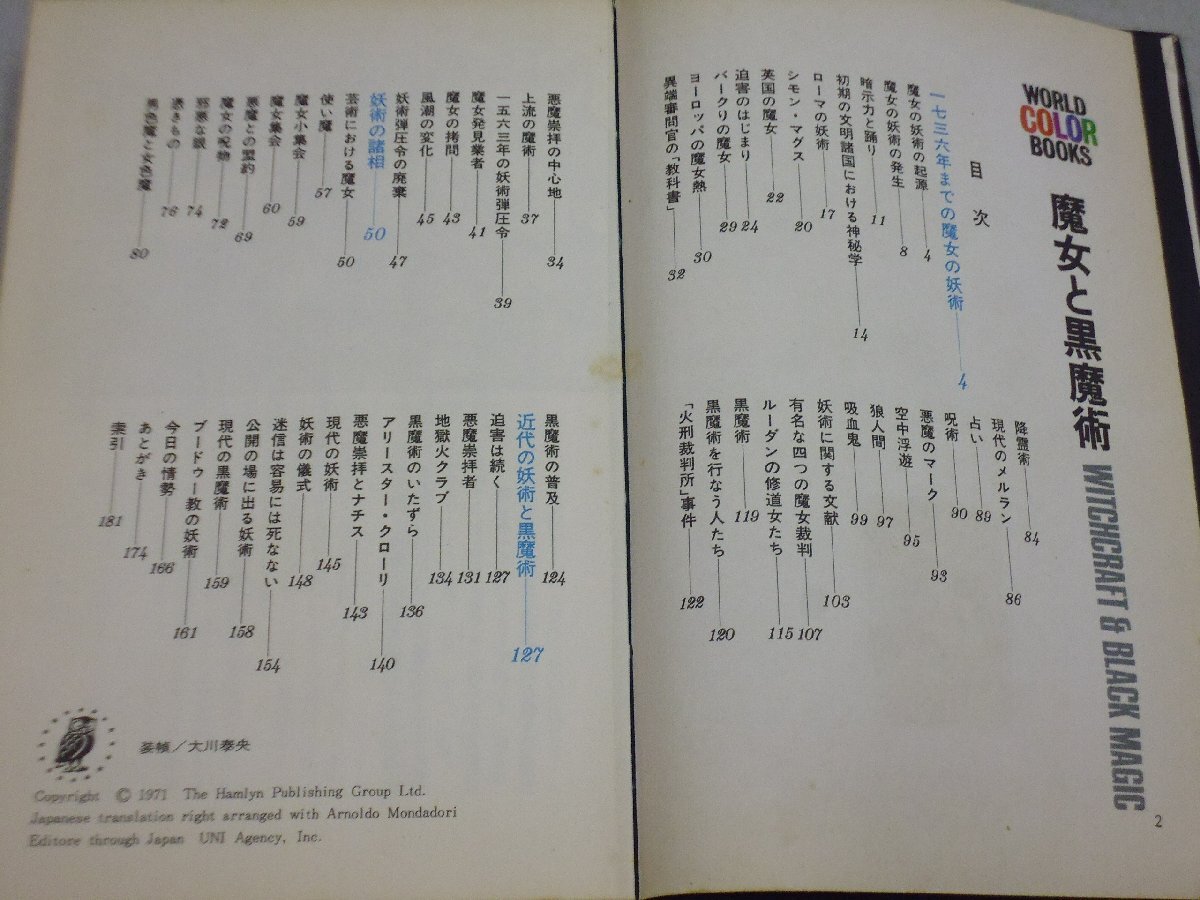 WORLD
COLOR
BOOKS
魔女と黒魔術
WITCHCRAFT & BLACK MAGIC
目次
一七三六年までの魔女の妖術 4
魔女の妖術の起源 4
魔女の妖術の発生 8
暗示力と踊り 11
初期の文明諸国における神秘学 14
ローマの妖術 17
シモン・マグス 20
英国の魔女 22
迫害のはじまり 24
バークリの魔女 29
ヨーロッパの魔女熱 30
異端審問官の「教科書」 32
降霊術 84
現代のメルラン 86
占い 89
呪術 90
悪魔のマーク 93
空中浮遊 95
狼人間 97
吸血鬼 99
妖術に関する文献 103
有名な四つの魔女裁判 107
ルーダンの修道女たち 115
黒魔術 119
黒魔術を行なう人たち 120
「火刑裁判所」事件 122
2
悪魔崇拝の中心地 34
上流の魔術 37
一五六三年の妖術弾圧令 39
魔女発見業者 41
魔女の拷問 43
風潮の変化 45
妖術弾圧令の廃棄 47
妖術の諸相 50
芸術における魔女 50
使い魔 57
魔女小集会 59
魔女集会 60
悪魔との盟約 69
魔女の呪物 72
邪悪な眼 74
憑きもの 76
男色魔と女色魔 80
黒魔術の普及 124
近代の妖術と黒魔術 127
迫害は続く 127
悪魔崇拝者 131
地獄火クラブ 134
黒魔術のいたずら 136
アリースター・クローリ 140
悪魔崇拝とナチス 143
現代の妖術 145
妖術の儀式 148
迷信は容易には死なない 154
公開の場に出る妖術 158
現代の黒魔術 159
ブードゥー教の妖術 161
今日の情勢 166
あとがき 174
索引 181
装幀／大川泰央
Copyright © 1971 The Hamlyn Publishing Group Ltd.
Japanese translation right arranged with Arnoldo Mondadori
Editore through Japan UNI Agency, Inc.